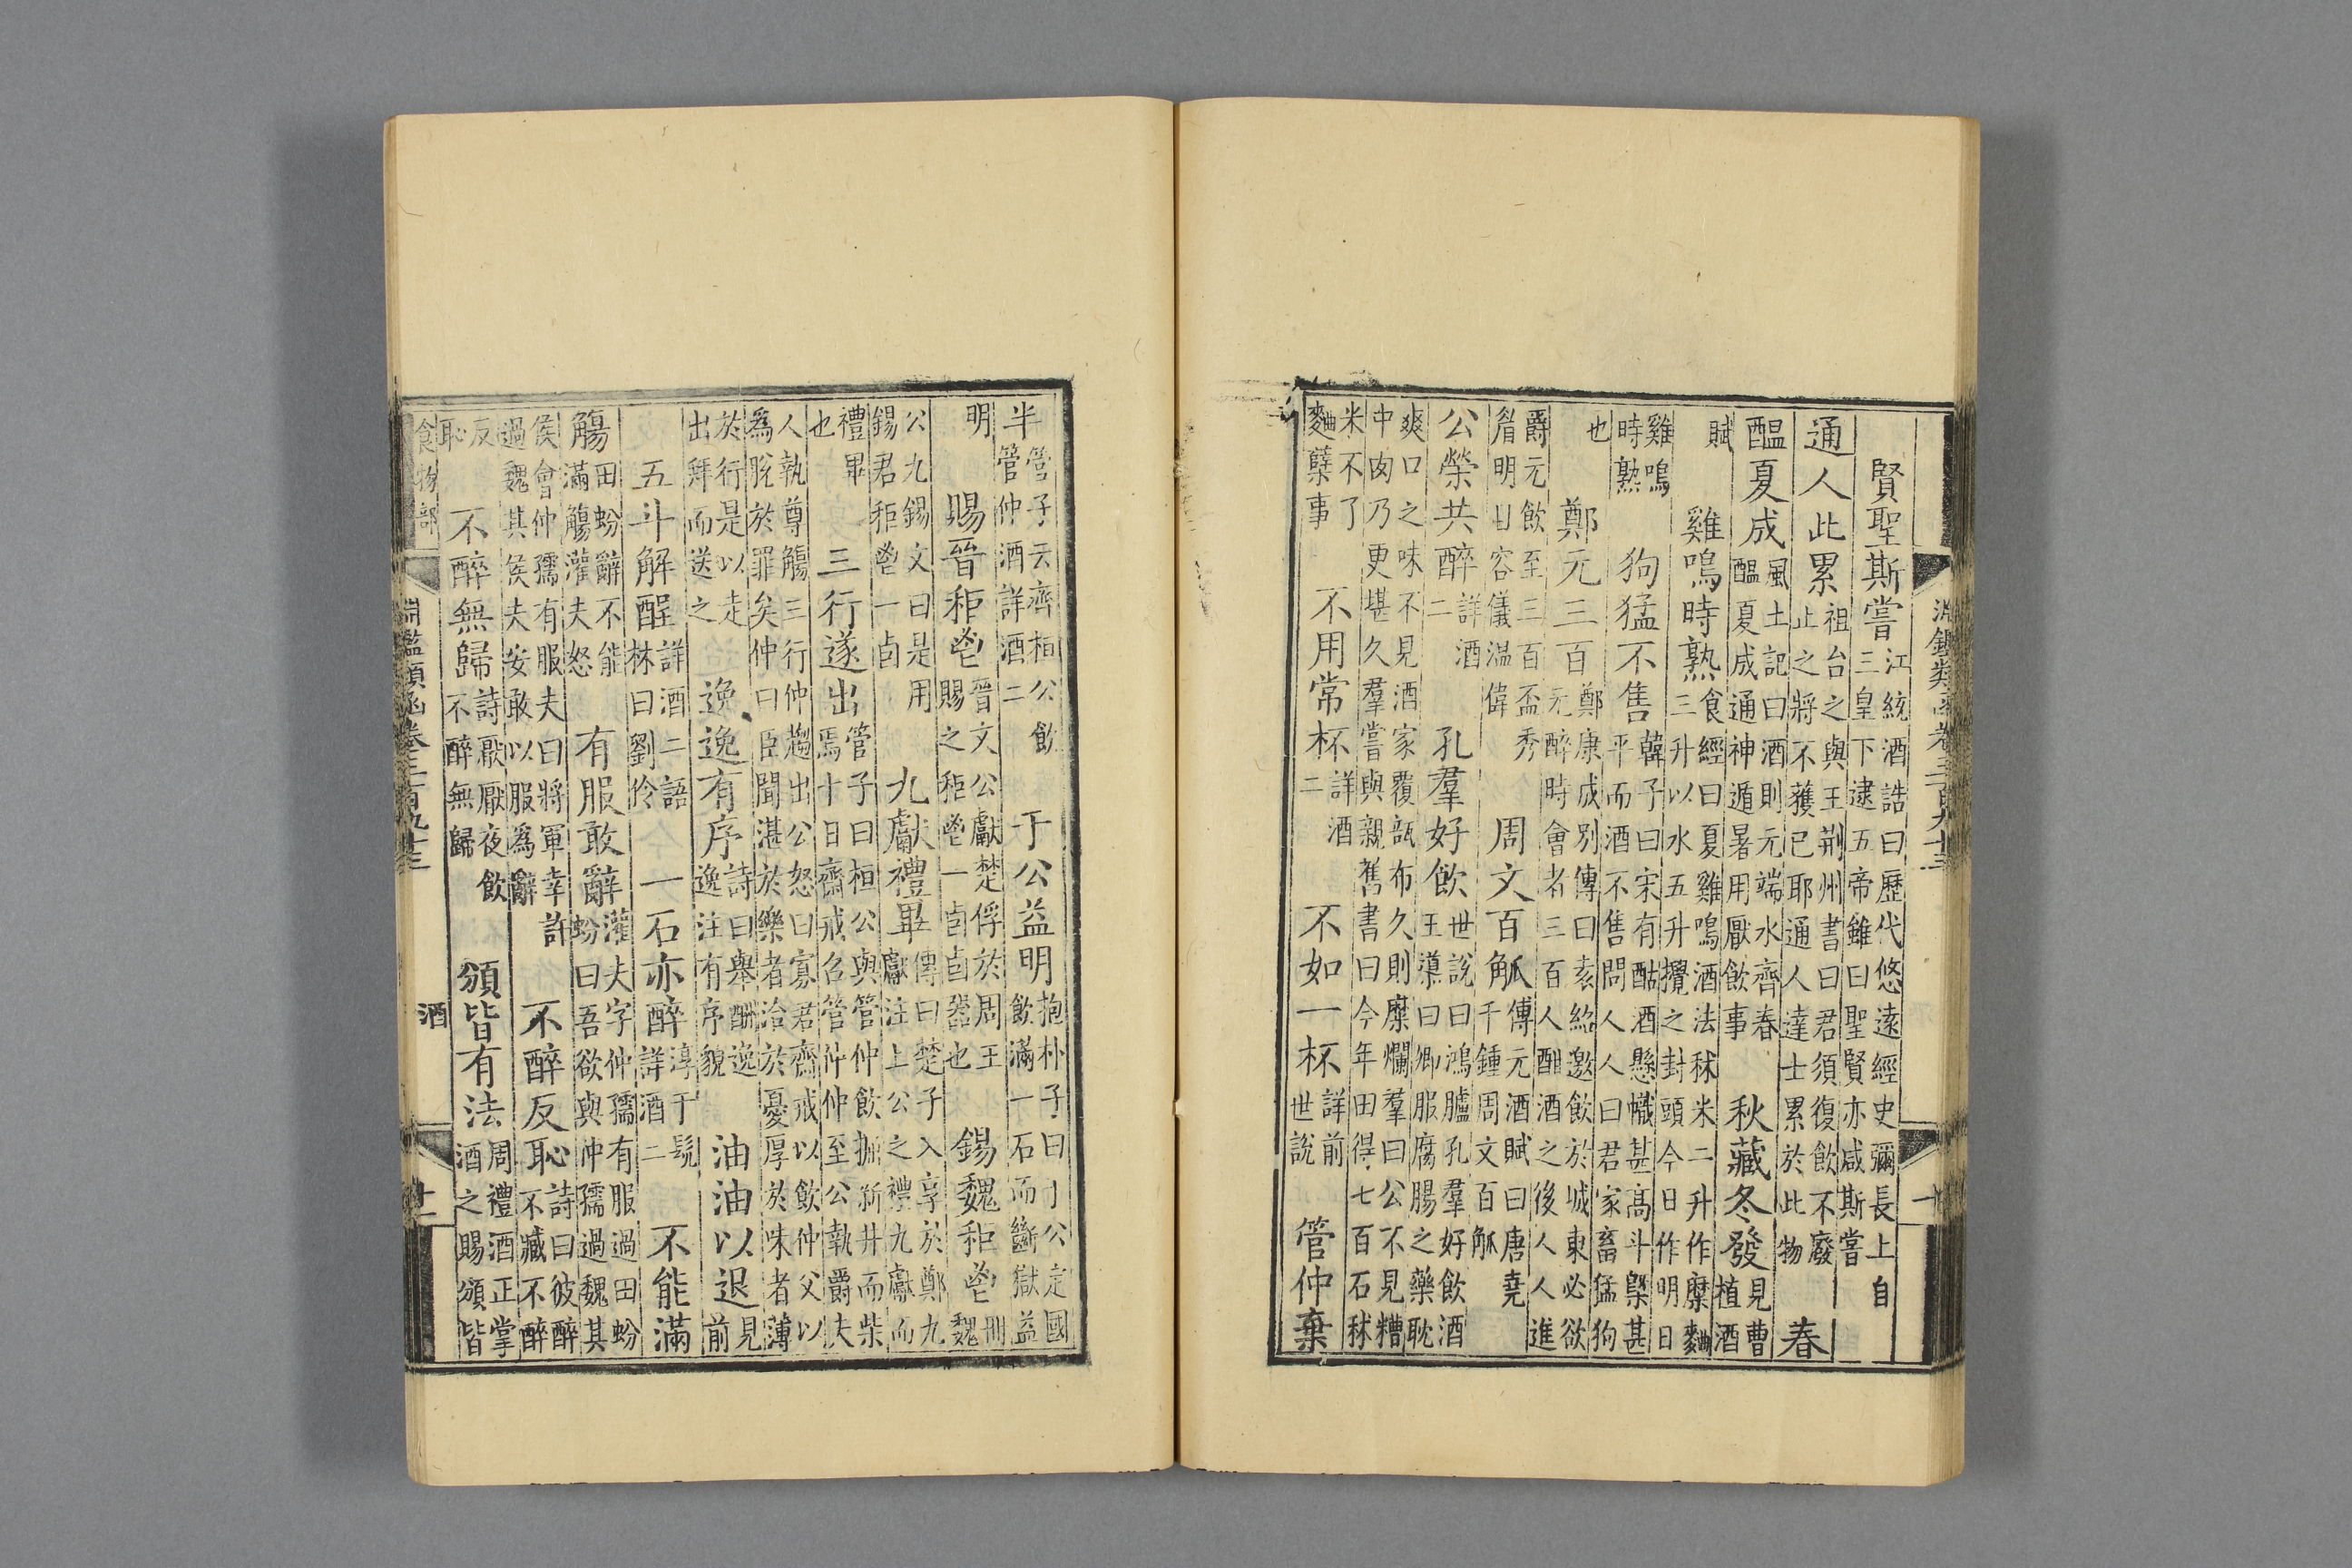 淵鑑類函卷三百九十三
賢聖斯嘗江統酒誥曰歷代悠遠經史彌長上自三皇下逮五帝雖曰聖賢亦咸斯嘗
通人此累祖台之與王荆州書曰君須復飲不廢止之將不獲已耶通人達士累於此物春
醖夏成風土記曰酒則元端水齊春醖夏成通神遁暑用厭飲事秋藏冬發見曹植酒
賦雞鳴時熟食經曰夏雞鳴酒法秫米二升作糜麴三升以水五升攪之封頭今日作明日
雞鳴時熟狗猛不售韓子曰宋有酤酒懸幟甚高斗槩甚平而酒不售問人人曰君家畜猛狗
也鄭元三百鄭康成別傳曰袁紹邀飲於城東必欲元醉時會者三百人酣酒之後人人進
爵元飲至三百盃秀眉明目容儀溫偉周文百觚傳元酒賦曰唐堯千鍾周文百觚
公榮共醉詳酒二孔羣好飲世說曰鴻臚孔羣好飲酒王導曰卿服腐腸之藥耽
爽口之味不見酒家覆瓿布久則糜爛羣曰公不見糟中肉乃更堪久羣嘗與親舊書曰今年田得七百石秫
米不了麴蘖事不用常杯詳酒二不如一杯詳前世說管仲棄
半管子云齊桓公飲管仲酒詳酒二于公益明抱朴子曰于公定國飲滿一石而斷獄益
明賜晉秬鬯晉文公獻楚俘於周王賜之秬鬯一卣卣器也錫魏秬鬯冊魏
公九錫文曰是用錫君秬鬯一卣九獻禮畢傳曰楚子入享於鄭九獻注上公之禮九獻而
禮畢也三行遂出管子曰桓公與管仲飲掘新井而柴焉十日齋戒召管仲仲至公執爵夫
人執尊觴三行仲趨出公怒曰寡君齋戒以飲仲父以為脫於罪矣仲曰臣聞湛於樂者洽於憂厚於味者薄
於行是以走出拜而送之逸逸有序詩曰舉酬逸逸注有序貌油油以退見前
五斗解酲詳酒二語林曰劉伶一石亦醉淳于髡詳酒二不能滿
觴田蚡辭不能滿觴灌夫怒有服敢辭灌夫字仲孺有服過田蚡蚡曰吾欲與仲孺過魏其
侯會仲孺有服夫曰將軍幸許過魏其侯夫安敢以服為辭不醉反恥詩曰彼醉不臧不醉
反恥不醉無歸詩厭厭夜飲不醉無歸頒皆有法周禮酒正掌酒之賜頒皆
食物部 淵鑑類函卷三百九十三 酒 十一